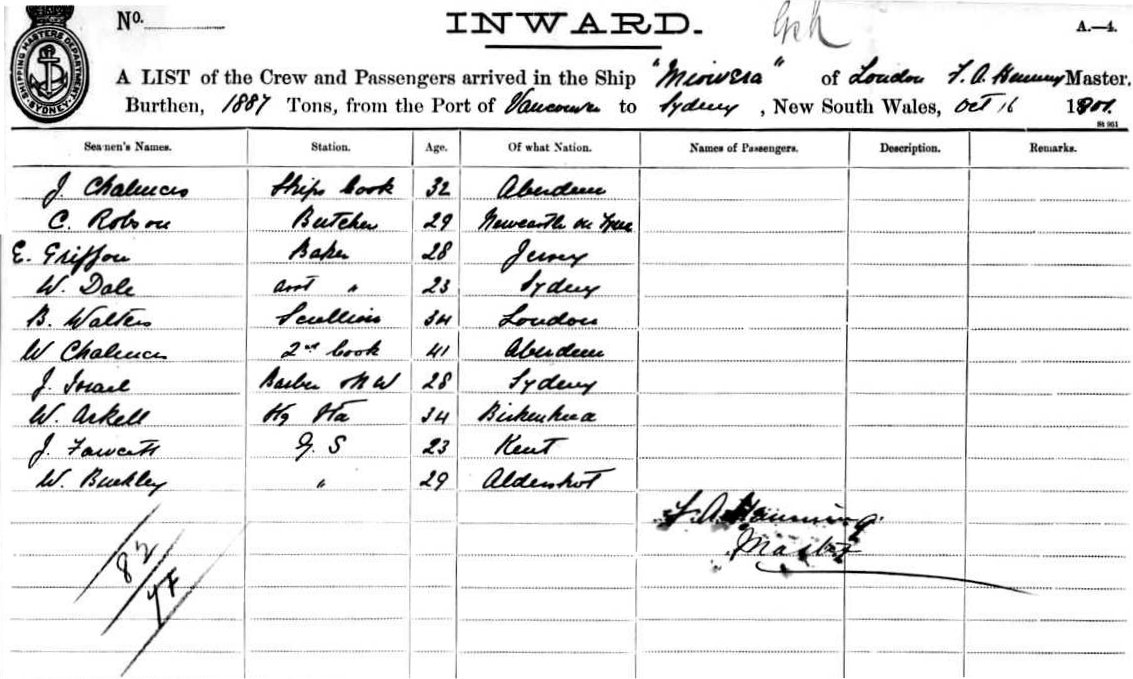 SHIPPING MASTERS DEPARTMENT. SYDNEY.
No.
INWARD.
A.—4.
A LIST of the Crew and Passengers arrived in the Ship "Miowera" of London F. A. Hemming Master,
Burthen, 1887 Tons, from the Port of Vancouver to Sydney, New South Wales, Oct 16 1901.
St 961
Seamen's Names. Station. Age. Of what Nation. Names of Passengers. Description. Remarks.
J. Chalmers Ships Cook 32 Aberdeen
C. Robson Butcher 29 Newcastle on Tyne
E. Griffon Baker 28 Jersey
W. Dale asst " 23 Sydney
B. Walters Scullion 34 London
W Chalmers 2nd Cook 41 Aberdeen
J. Israel Barber 28 Sydney
W. Arkell 34 Birkenhead
J. Fawcett G. S 23 Kent
W. Buckley " 29 Aldershot
F. A. Hemming
Master
82